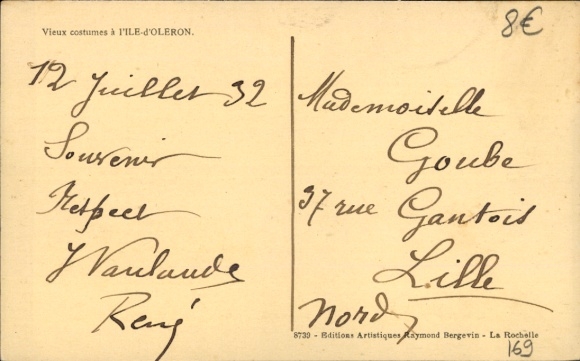 Vieux costumes à l'ILE-d'OLERON.
8€
12 Juillet 32
Souvenir
Respect
René
Mademoiselle
Goube
37 rue Gantois
Lille
Nord
8739 - Editions Artistiques Raymond Bergevin - La Rochelle
169